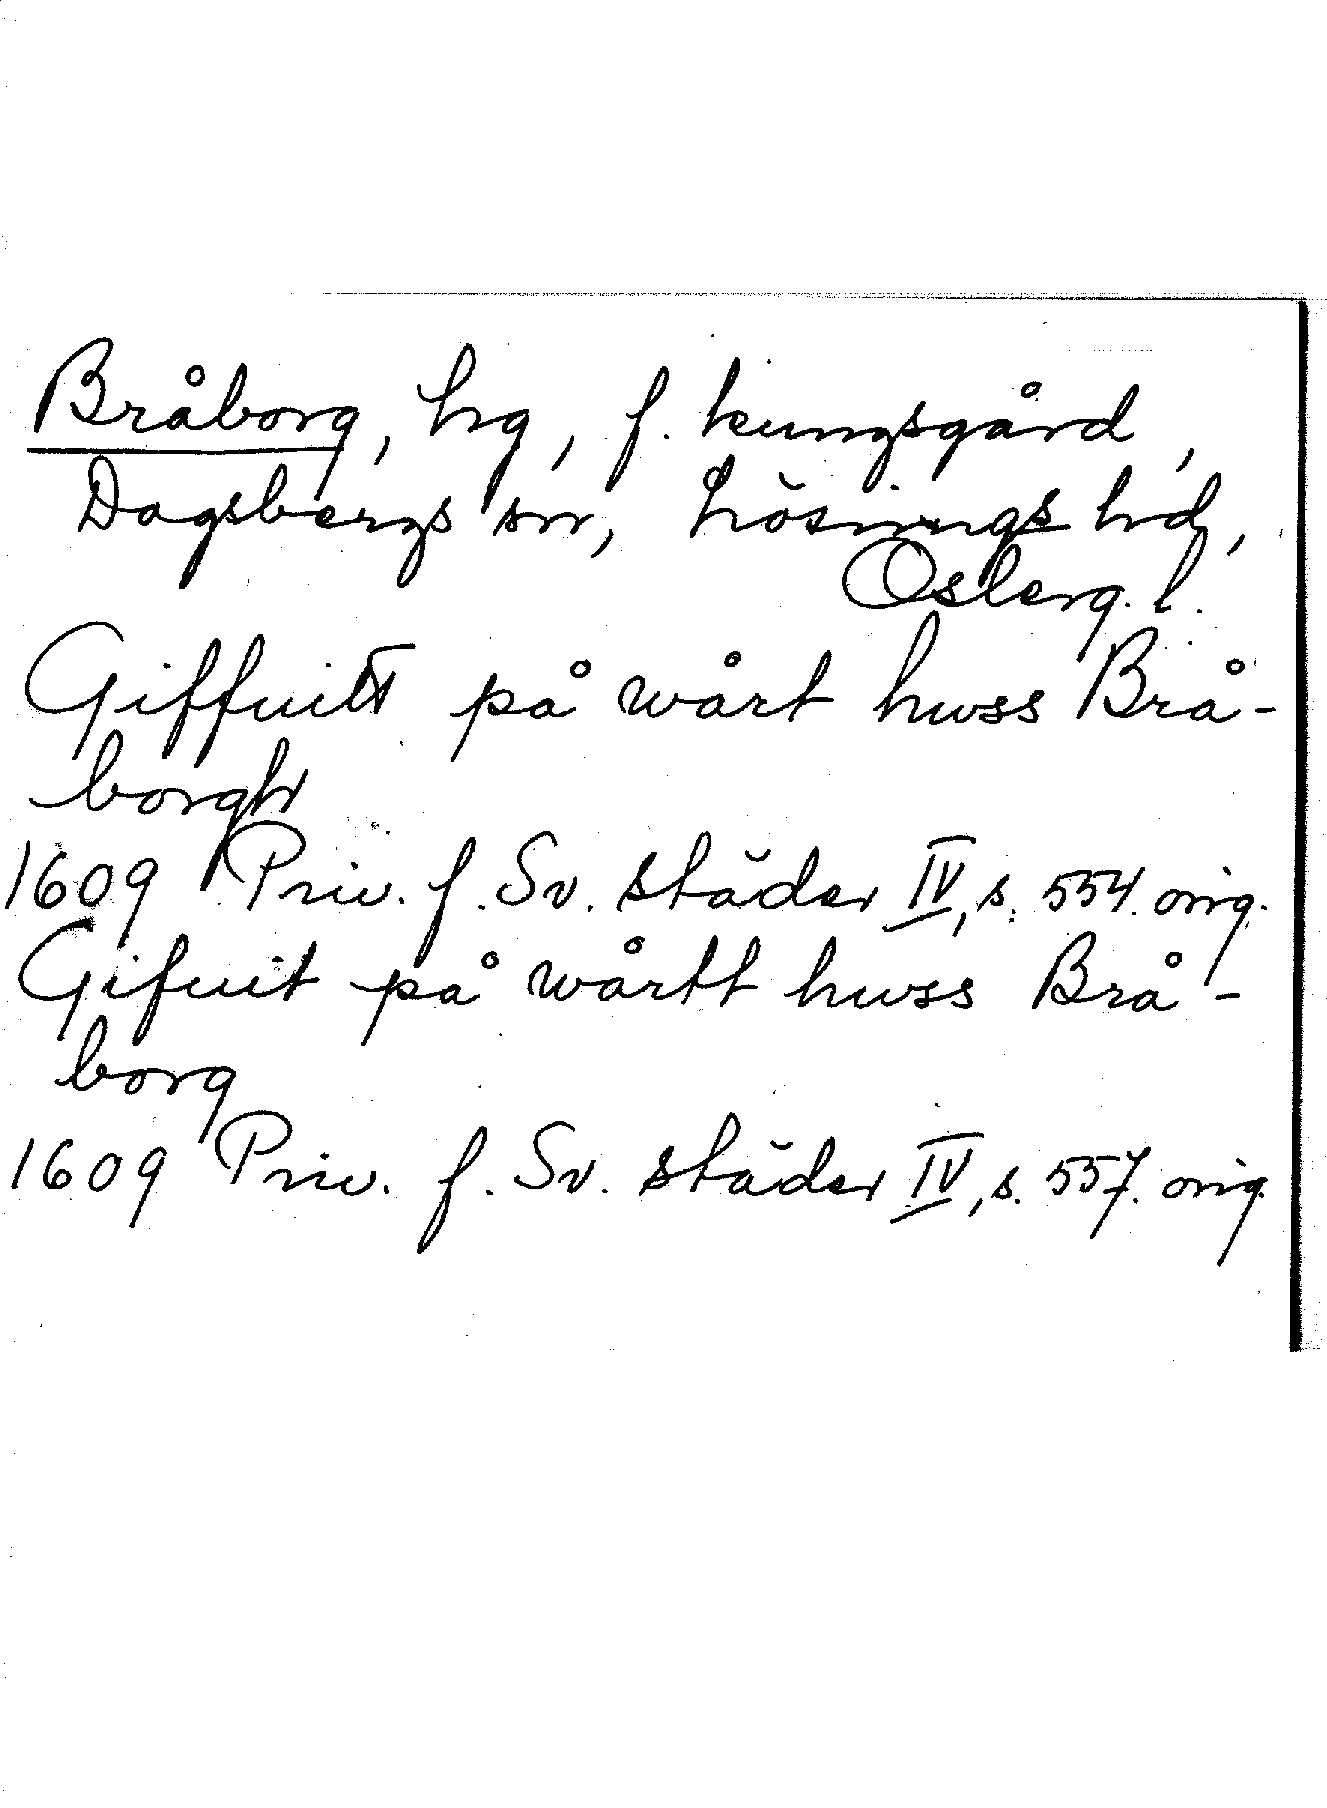 Bråborg, hrg, f. kungsgård,
Dagsbergs sn, Lösings hd,
Österg. l.
Giffuitt på wårt huss Brå-
borgh
1609 Priv. f. Sv. städer IV, s. 554. orig.
Gifuit på wårtt huss Brå-
borg
1609 Priv. f. Sv. städer IV, s. 557. orig